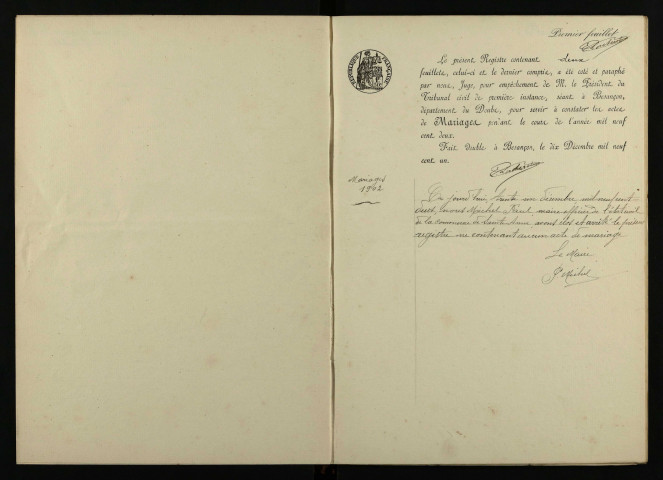 Premier feuillet
RÉPUBLIQUE FRANÇAISE
Le présent Registre contenant deux
feuillets, celui-ci et le dernier compris, a été coté et paraphé
par nous, Juge, pour empêchement de M. le Président du
Tribunal civil de première instance, séant à Besançon,
département du Doubs, pour servir à constater les actes
de Mariages pendant le cours de l'année mil neuf
cent deux.
Fait double à Besançon, le dix Décembre mil neuf
cent un.
Mariages
1902
Ce jourd'hui trente un décembre mil neuf cent
deux, nous Michel maire officier de l'état civil
de la commune de Sainte Anne avons clos et arrêté le présent
registre ne contenant aucun acte de mariage
Le Maire
Michel